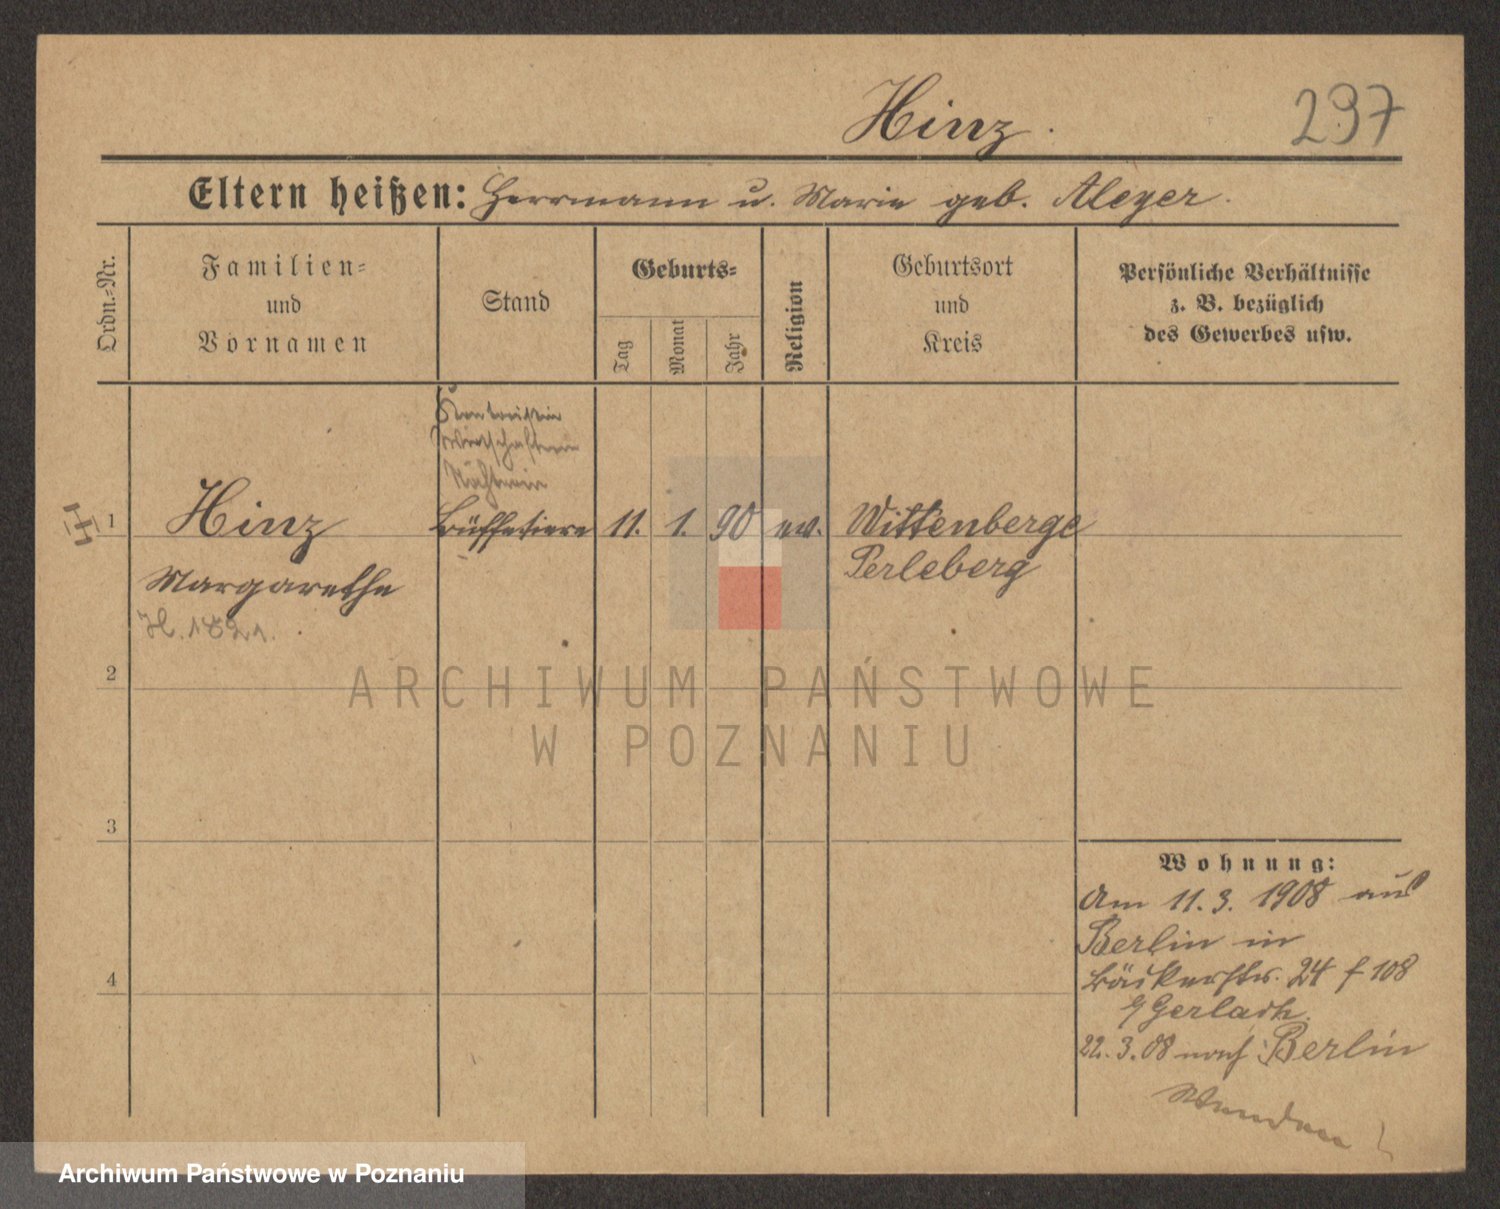 Hinz.
237
Eltern heißen: Herrmann u. Marie geb. Aleyer.
Ordn.=Nr.
Familien=
und
Vornamen
Stand
Geburts=
Tag
Monat
Jahr
Religion
Geburtsort
und
Kreis
Persönliche Verhältnisse
z. B. bezüglich
des Gewerbes usw.
Kontoristin
Wirtschafterin
Näherin
H
1
Hinz
Büffetiere
11.
1.
90
ev.
Wittenberge
Perleberg
Margarethe
H. 1821.
2
3
4
Wohnung:
Am 11.3. 1908 aus
Berlin in
Bäckerstr. 24 f 108
b/ Gerlach.
22.3.08 nach Berlin
ARCHIWUM PAŃSTWOWE
W POZNANIU
Archiwum Państwowe w Poznaniu